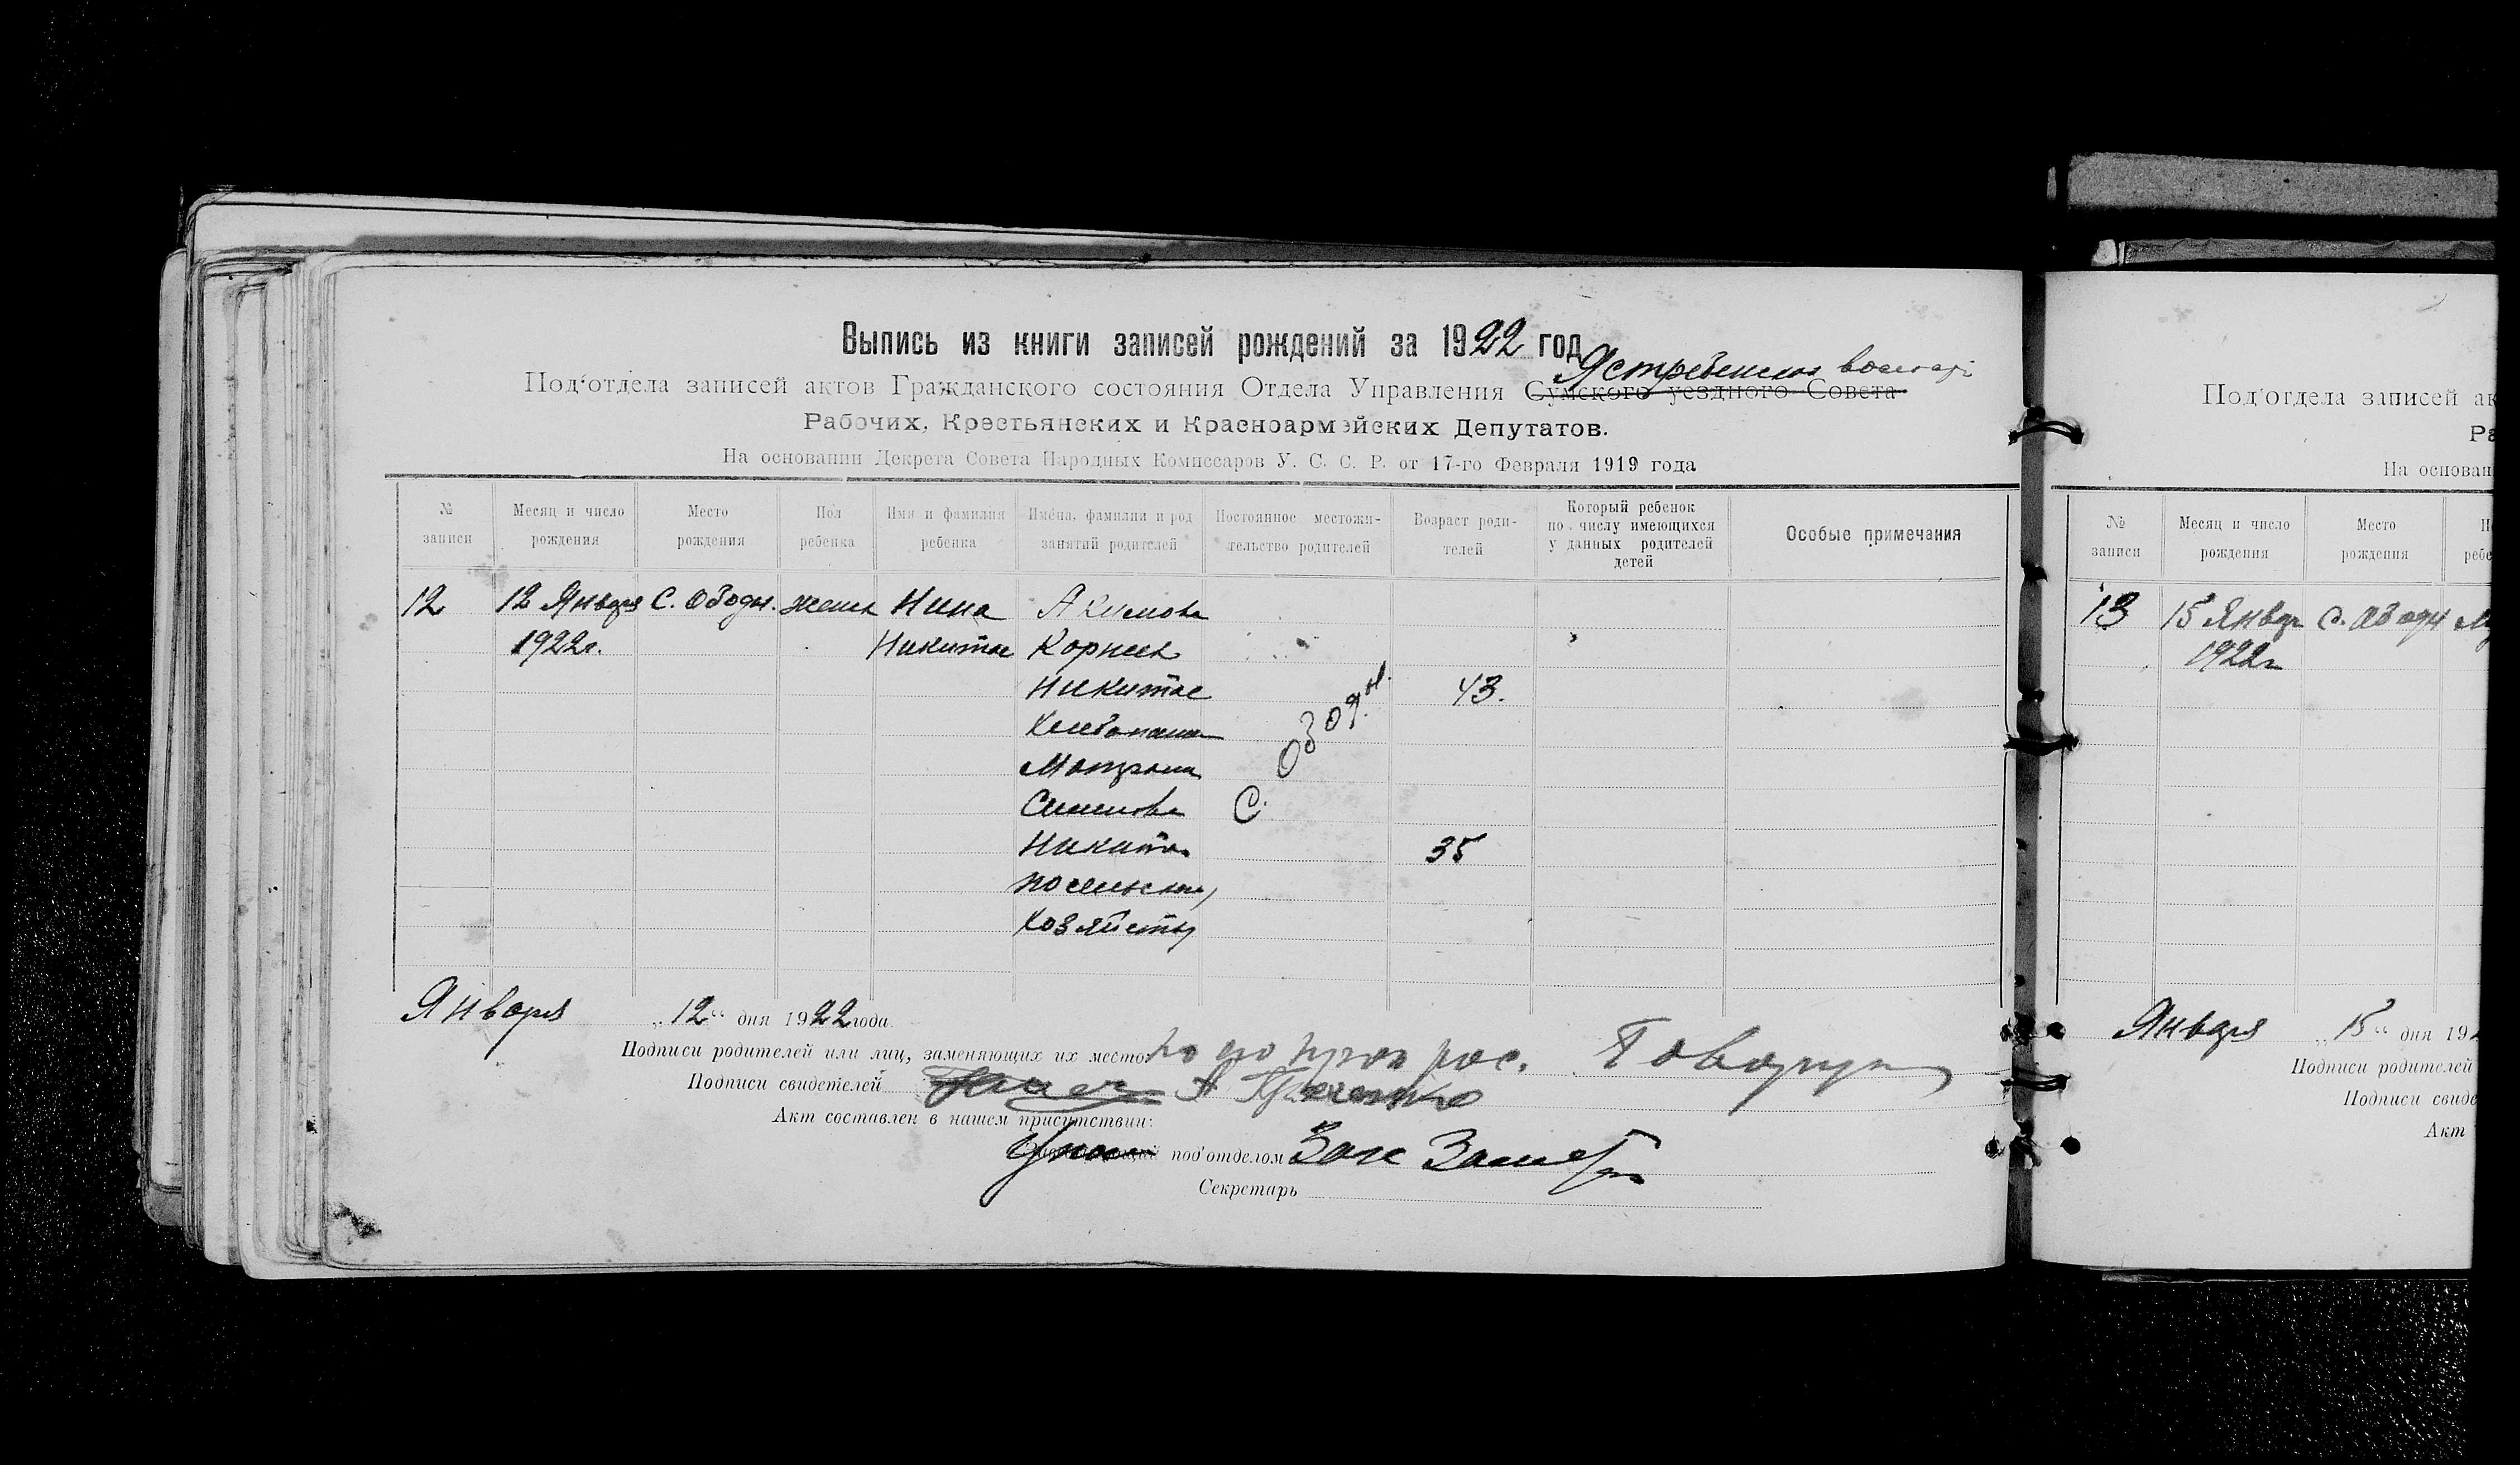 Выпись из книги записей рождений за 1922 год
Ястребенской волости
Под'отдела записей актов Гражданского состояния Отдела Управления Сумского уездного Совета
Рабочих, Крестьянских и Красноармэйских Депутатов.
На основании Декрета Совета Народных Комиссаров У. С. С. Р. от 17-го Февраля 1919 года
№ записи
Месяц и число рождения
Место рождения
Пол ребенка
Имя и фамилия ребенка
Имена, фамилии и род занятий родителей
Постоянное местожительство родителей
Возраст родителей
Который ребенок по числу имеющихся у данных родителей детей
Особые примечания
12 12 Января С. Ободы. женск Нина Акимова
1922г. Никитче Корнеев
Никитче 43.
Хлебопашец
Матрона Ободы.
Семенова С.
Никитч 35
по сельском,
хозяйству
Января „12“ дня 1922 года.
Подписи родителей или лиц, заменяющих их место: по его прос рос. Говорун
Подписи свидетелей А
Акт составлен в нашем присутствии:
под'отделом Зак
Секретарь
Под'отдела записей ак
Ра
На основан
№ записи
Месяц и число рождения
Место рождения
П
ребе
13 15 Январ с. Ободы М
1922г
Января „15“ дня 192
Подписи родителей
Подписи свиде
Акт